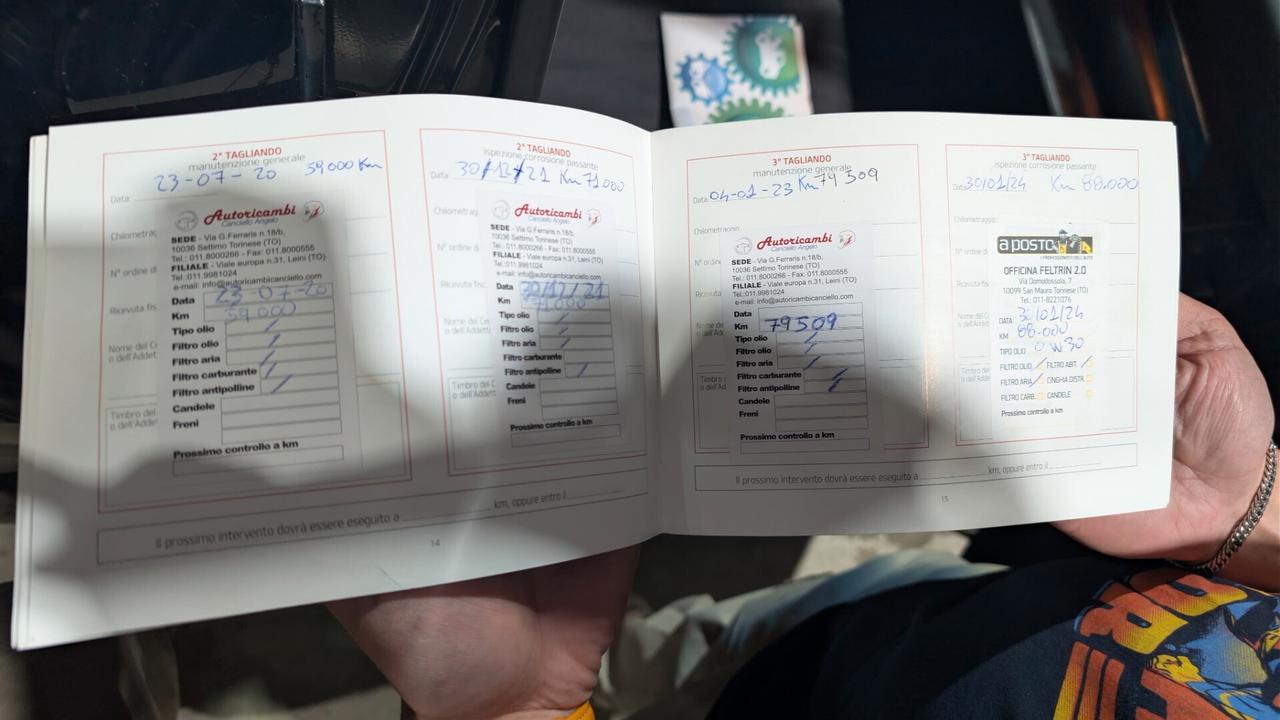 2° TAGLIANDO
manutenzione generale
59000 Km
Data: 23-07-20
Chilometraggio
N° ordine di
Ricevuta fis
Nome del
o dell'Addetto
Timbro del
o dell'Addetto
Autoricambi
Canciello Angelo
SEDE - Via G.Ferraris n.18/b,
10036 Settimo Torinese (TO)
Tel.: 011.8000266 - Fax: 011.8000555
FILIALE - Viale europa n.31, Leinì (TO)
Tel.:011.9981024
e-mail: info@autoricambicanciello.com
Data 23-07-20
Km 59000
Tipo olio
Filtro olio
Filtro aria
Filtro carburante
Filtro antipolline
Candele
Freni
Prossimo controllo a km
2° TAGLIANDO
ispezione corrosione passante
Data: 30/12/21 Km 71000
Chilometraggio
N° ordine di
Ricevuta fis
Nome del
o dell'Addetto
Timbro del
o dell'Addetto
Autoricambi
Canciello Angelo
SEDE - Via G.Ferraris n.18/b,
10036 Settimo Torinese (TO)
Tel.: 011.8000266 - Fax: 011.8000555
FILIALE - Viale europa n.31, Leinì (TO)
Tel.:011.9981024
e-mail: info@autoricambicanciello.com
Data 30/12/21
Km 71000
Tipo olio
Filtro olio
Filtro aria
Filtro carburante
Filtro antipolline
Candele
Freni
Prossimo controllo a km
Il prossimo intervento dovrà essere eseguito a km, oppure entro il
14
3° TAGLIANDO
manutenzione generale
Data: 04-01-23 Km 79509
Autoricambi
Canciello Angelo
SEDE - Via G.Ferraris n.18/b,
10036 Settimo Torinese (TO)
Tel.: 011.8000266 - Fax: 011.8000555
FILIALE - Viale europa n.31, Leinì (TO)
Tel.:011.9981024
e-mail: info@autoricambicanciello.com
Data
Km 79509
Tipo olio
Filtro olio
Filtro aria
Filtro carburante
Filtro antipolline
Candele
Freni
Prossimo controllo a km
3° TAGLIANDO
ispezione corrosione passante
Data: 30/01/24 Km 88.000
Chilometraggio
a posto
I PROFESSIONISTI DELL'AUTO
OFFICINA FELTRIN 2.0
Via Domodossola, 7
10099 San Mauro Torinese (TO)
Tel.: 011-8221076
DATA 30/01/24
KM 88.000
TIPO OLIO 0W30
FILTRO OLIO FILTRO ABIT.
FILTRO ARIA CINGHIA DISTR.
FILTRO CARB. CANDELE
Prossimo controllo a km
Il prossimo intervento dovrà essere eseguito a km, oppure entro il
15